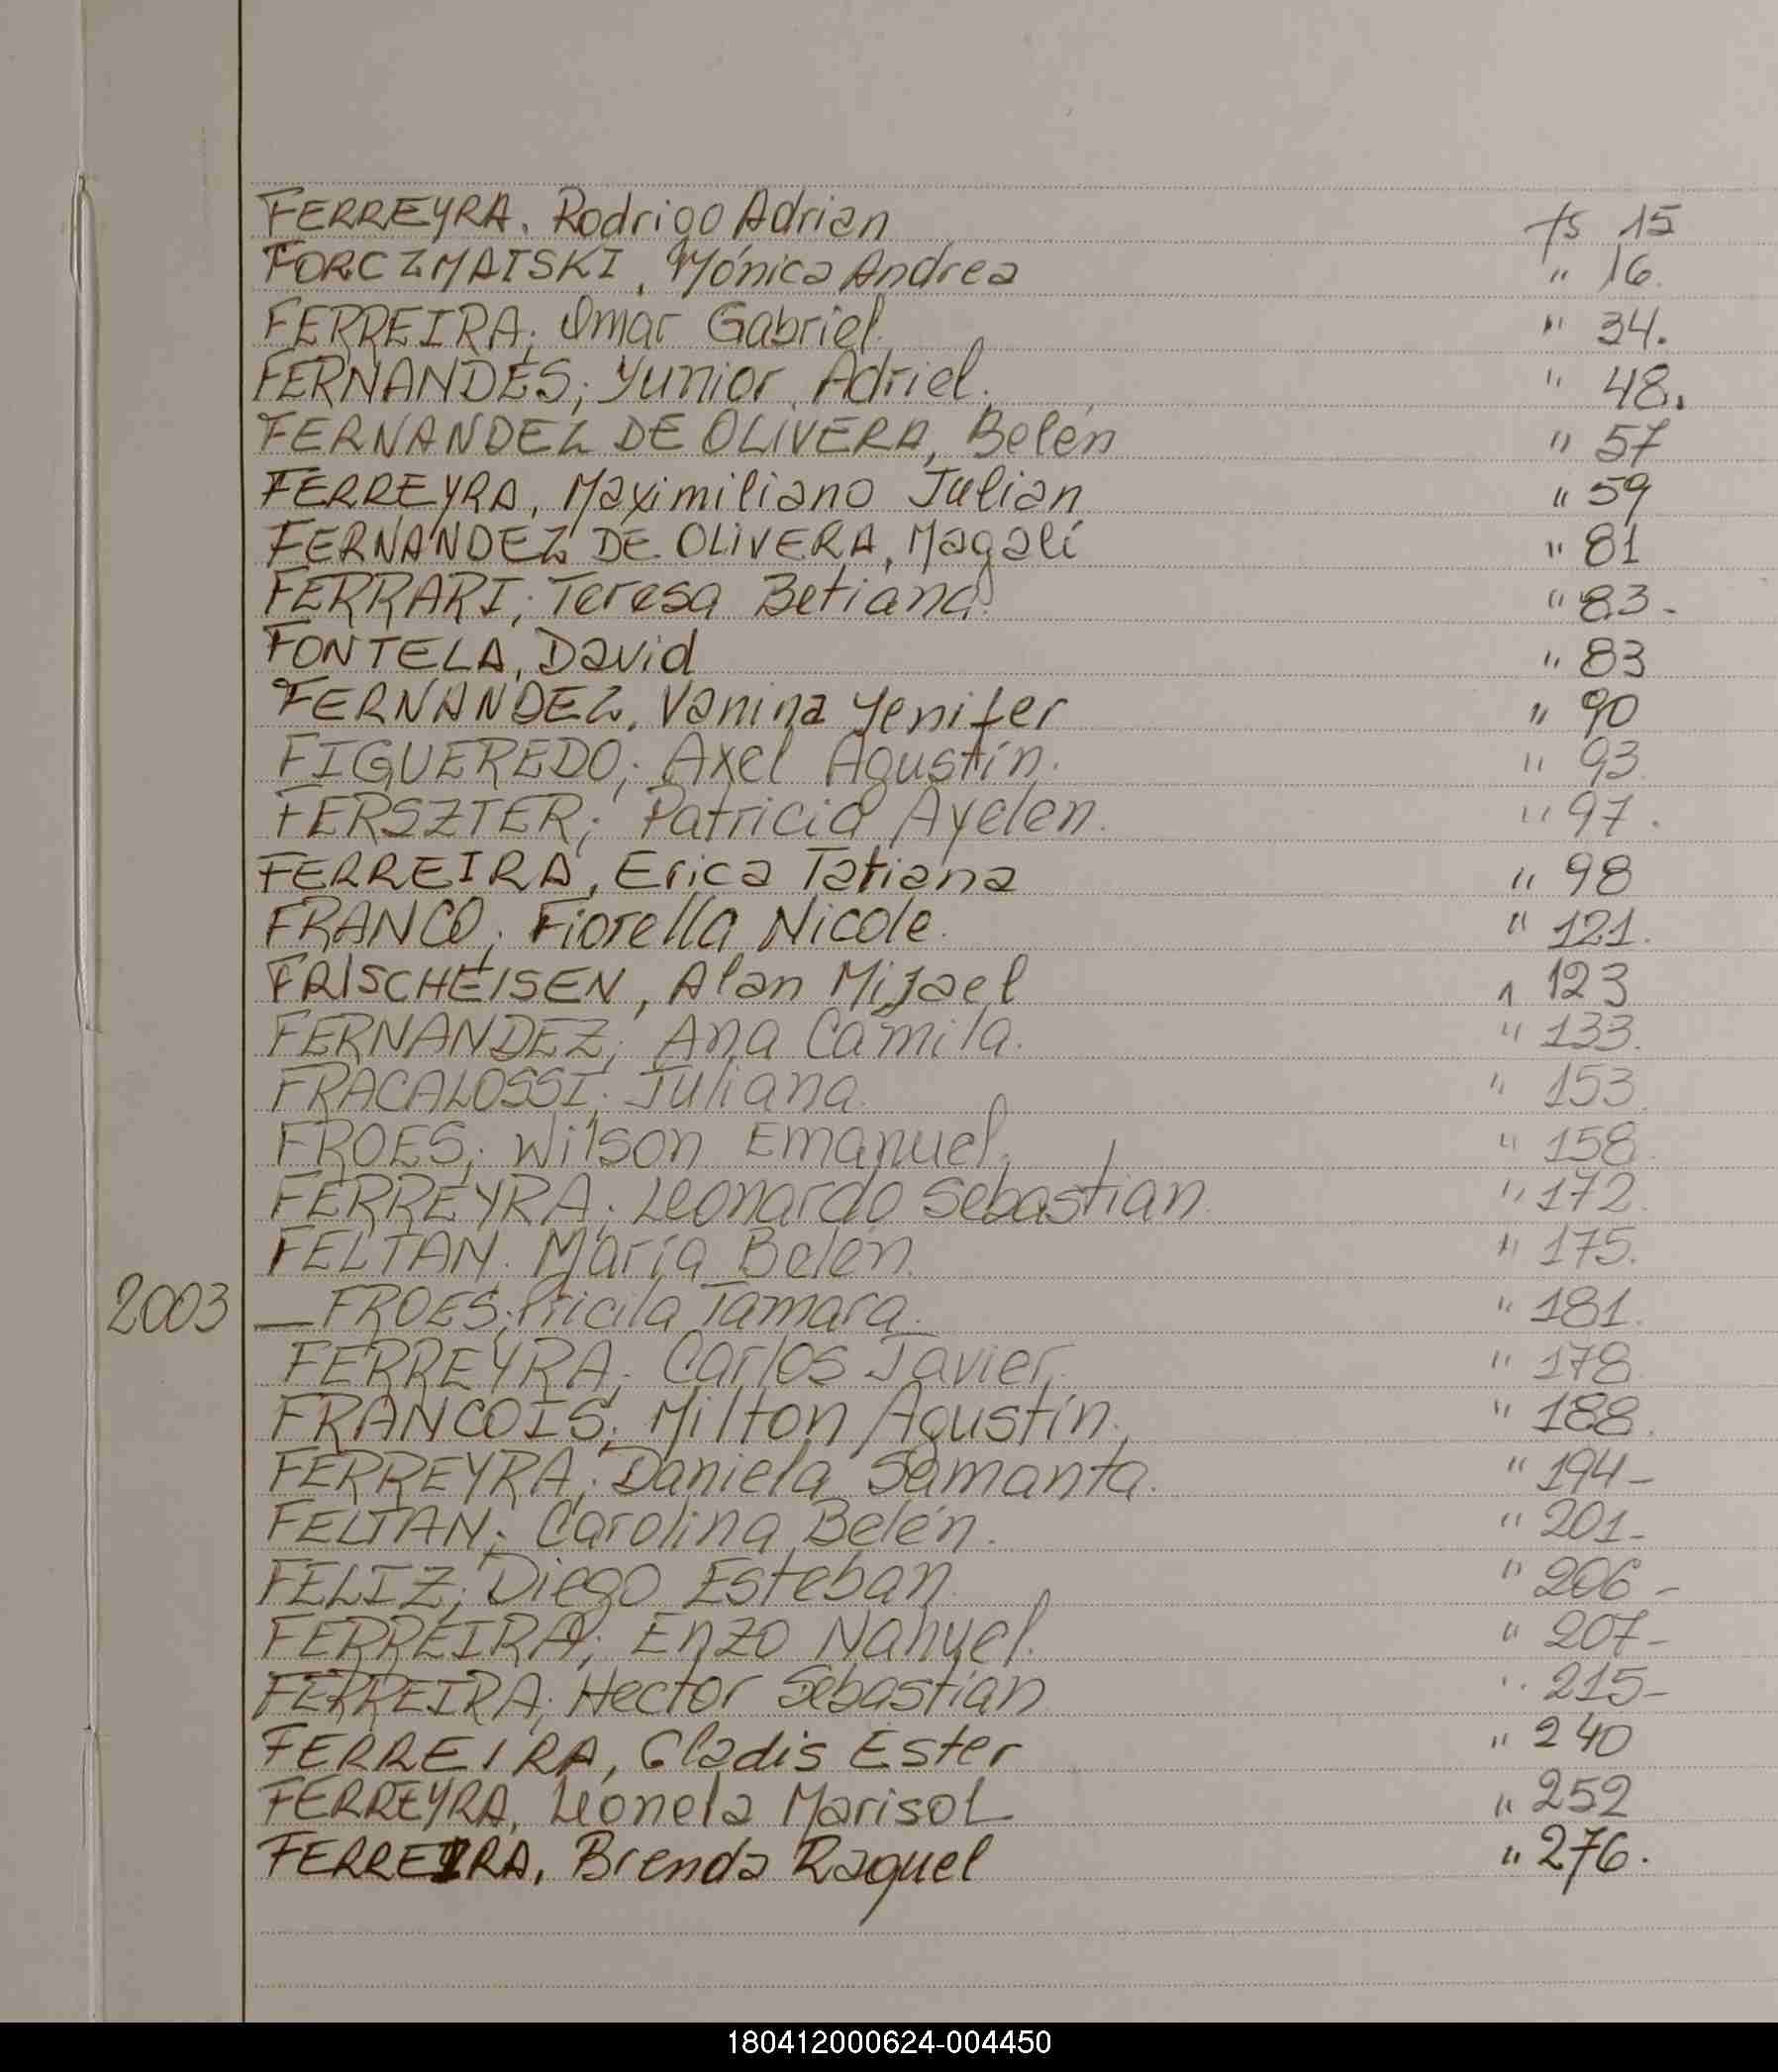 FERREYRA, Rodrigo Adrian fs 15
FORCZMAISKI, Mónica Andrea " 16.
FERREIRA; Omar Gabriel. " 34.
FERNANDES; Yunior Adriel. " 48.
FERNANDEZ DE OLIVERA, Belén " 57
FERREYRA, Maximiliano Julian " 59
FERNANDEZ DE OLIVERA, Magalí " 81
FERRARI; Teresa Betiana. " 83-
FONTELA, David " 83
FERNANDEZ, Vanina Yenifer " 90
FIGUEREDO; Axel Agustín. " 93
FERSZTER; Patricia Ayelen. " 97.
FERREIRA, Erica Tatiana " 98
FRANCO; Fiorella Nicole. " 121.
FRISCHEISEN, Alan Mijael " 123
FERNANDEZ; Ana Camila. " 133.
FRACALOSSI; Juliana. " 153.
FROES; Wilson Emanuel. " 158.
FERREYRA; Leonardo Sebastian. " 172.
FELTAN. María Belén. " 175.
2003 — FROES; Pricila Tamara. " 181.
FERREYRA; Carlos Javier. " 178.
FRANCOIS; Milton Agustín. " 188.
FERREYRA; Daniela Samanta. " 194-
FELTAN; Carolina Belén. " 201-
FELIZ; Diego Esteban. " 206-
FERREIRA; Enzo Nahuel. " 207-
FERREIRA; Hector Sebastian " 215-
FERREIRA, Gladis Ester " 240
FERREYRA, Leonela Marisol " 252
FERREIRA, Brenda Raquel " 276.
180412000624-004450